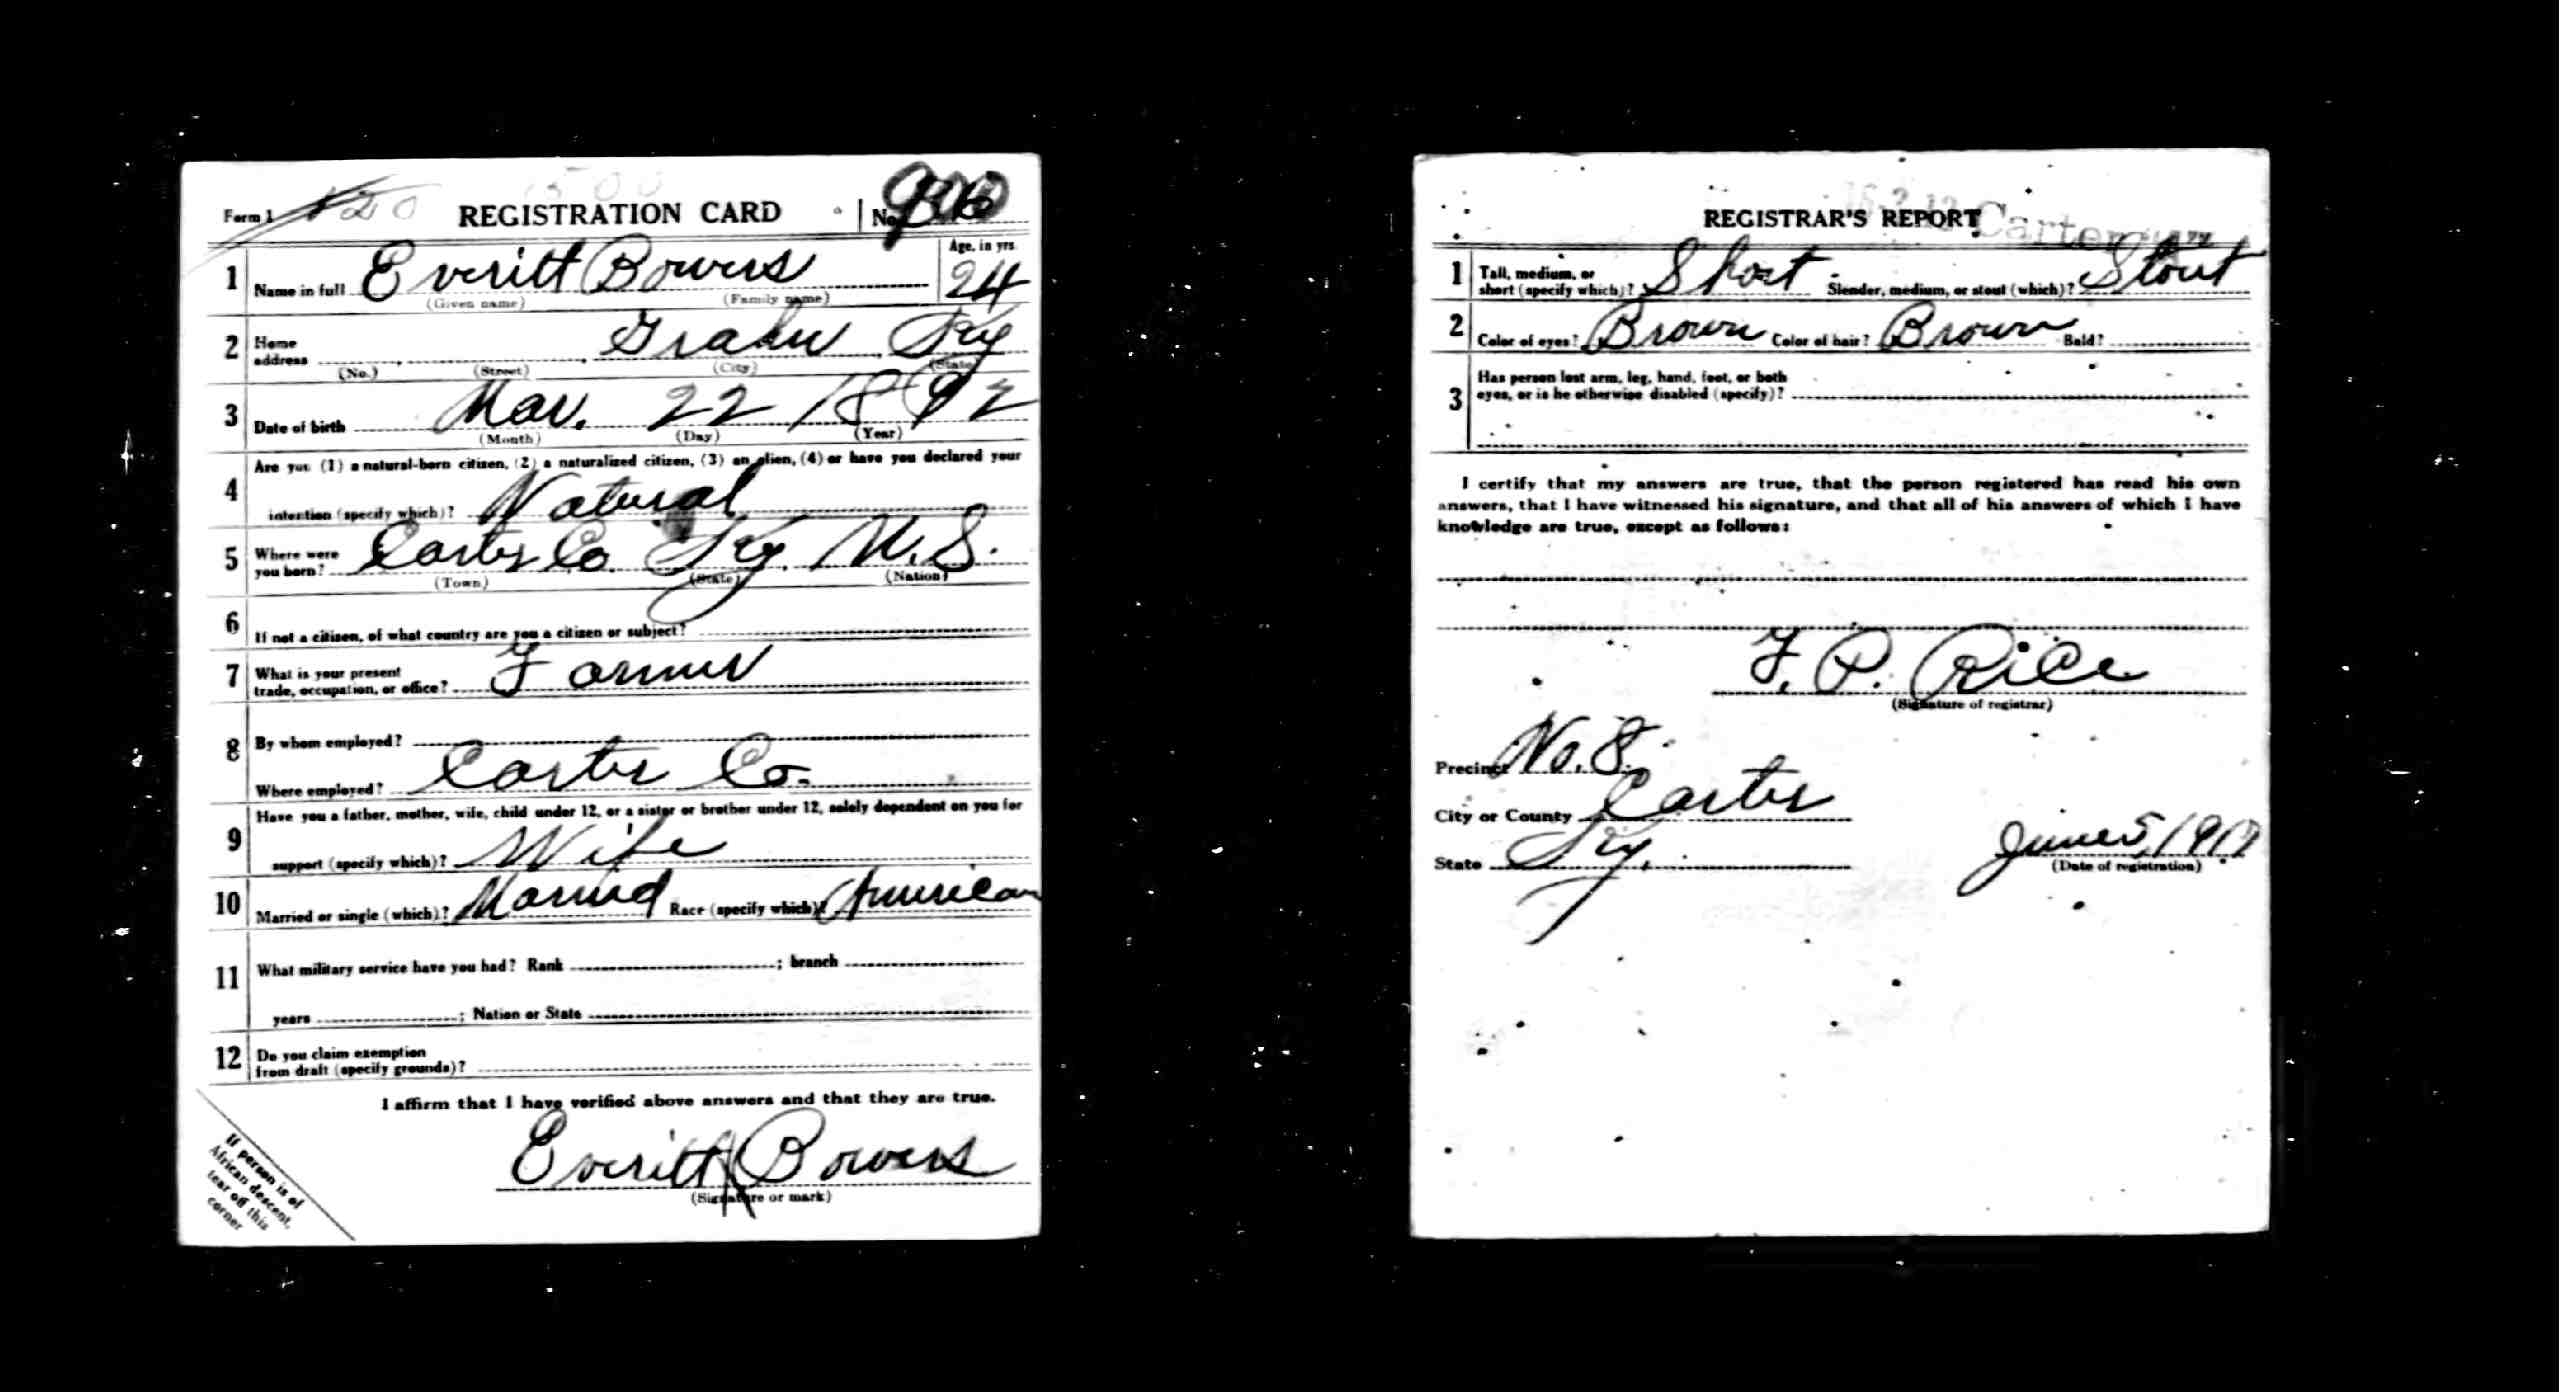 Form 1 REGISTRATION CARD No.
1 Name in full Everitt Bowers Age, in yrs. 24
(Given name) (Family name)
2 Home address Grahn Ky
(No.) (Street) (City) (State)
3 Date of birth Mar. 22 1892
(Month) (Day) (Year)
4 Are you (1) a natural-born citizen, (2) a naturalized citizen, (3) an alien, (4) or have you declared your
intention (specify which)? Natural
5 Where were you born? Carter Co. Ky. U.S.
(Town) (State) (Nation)
6 If not a citizen, of what country are you a citizen or subject?
7 What is your present trade, occupation, or office? Farmer
8 By whom employed?
Where employed? Carter Co.
9 Have you a father, mother, wife, child under 12, or a sister or brother under 12, solely dependent on you for
support (specify which)? Wife
10 Married or single (which)? Married Race (specify which)? American
11 What military service have you had? Rank ; branch
years ; Nation or State
12 Do you claim exemption
from draft (specify grounds)?
I affirm that I have verified above answers and that they are true.
Everitt Bowers
(Signature or mark)
If person is of
African descent,
tear off this
corner
REGISTRAR'S REPORT
Carter
1 Tall, medium, or short (specify which)? Short Slender, medium, or stout (which)? Stout
2 Color of eyes? Brown Color of hair? Brown Bald?
3 Has person lost arm, leg, hand, foot, or both
eyes, or is he otherwise disabled (specify)?
I certify that my answers are true, that the person registered has read his own
answers, that I have witnessed his signature, and that all of his answers of which I have
knowledge are true, except as follows:
F. P. Rice
(Signature of registrar)
Precinct No. 8.
City or County Carter
State Ky. June 5, 1917
(Date of registration)